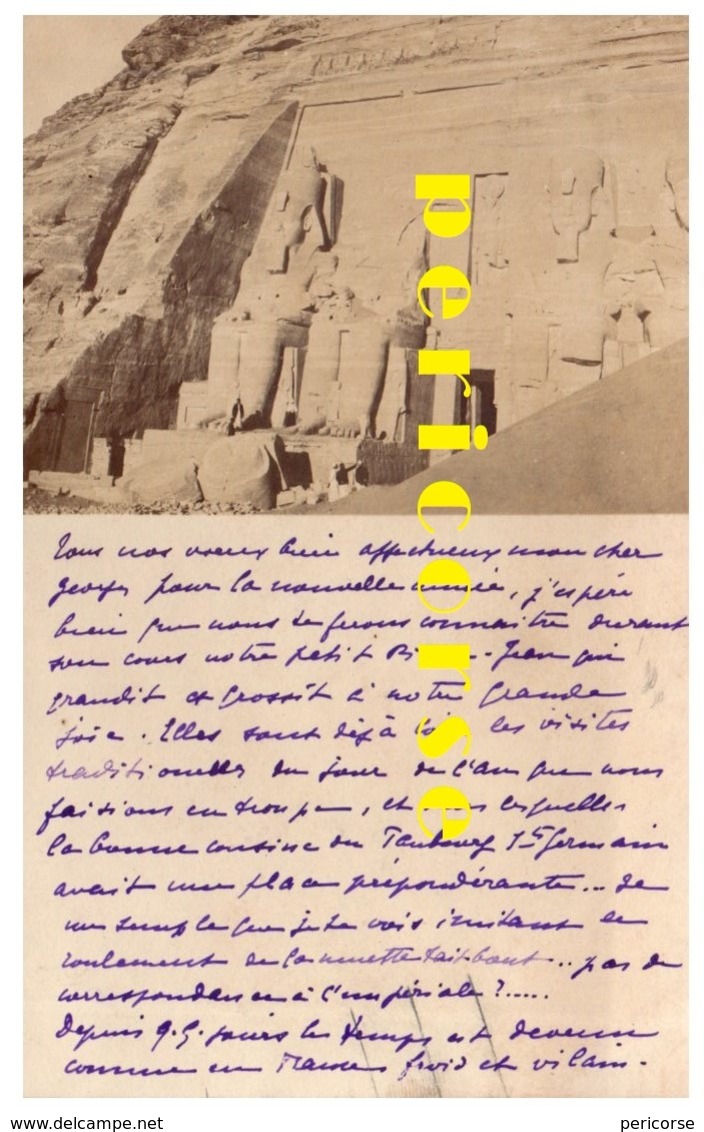 Tous nos voeux bien affectueux mon cher
Georges pour la nouvelle année, j'espère
bien que nous te ferons connaitre durant
son cours notre petit Jean qui
grandit et grossit à notre grande
joie. Elles sont déjà loin les visites
traditionelles du jour de l'an que nous
faisions en troupe, et dans lesquelles
la bonne cousine du Faubourg St Germain
avait une place prépondérante... Il
me semble que je te vois imitant le
roulement de la .. pas de
correspondance à l'impériale?.....
Depuis q.q. jours le temps est devenu
comme en France froid et vilain.
pericorse
www.delcampe.net
pericorse